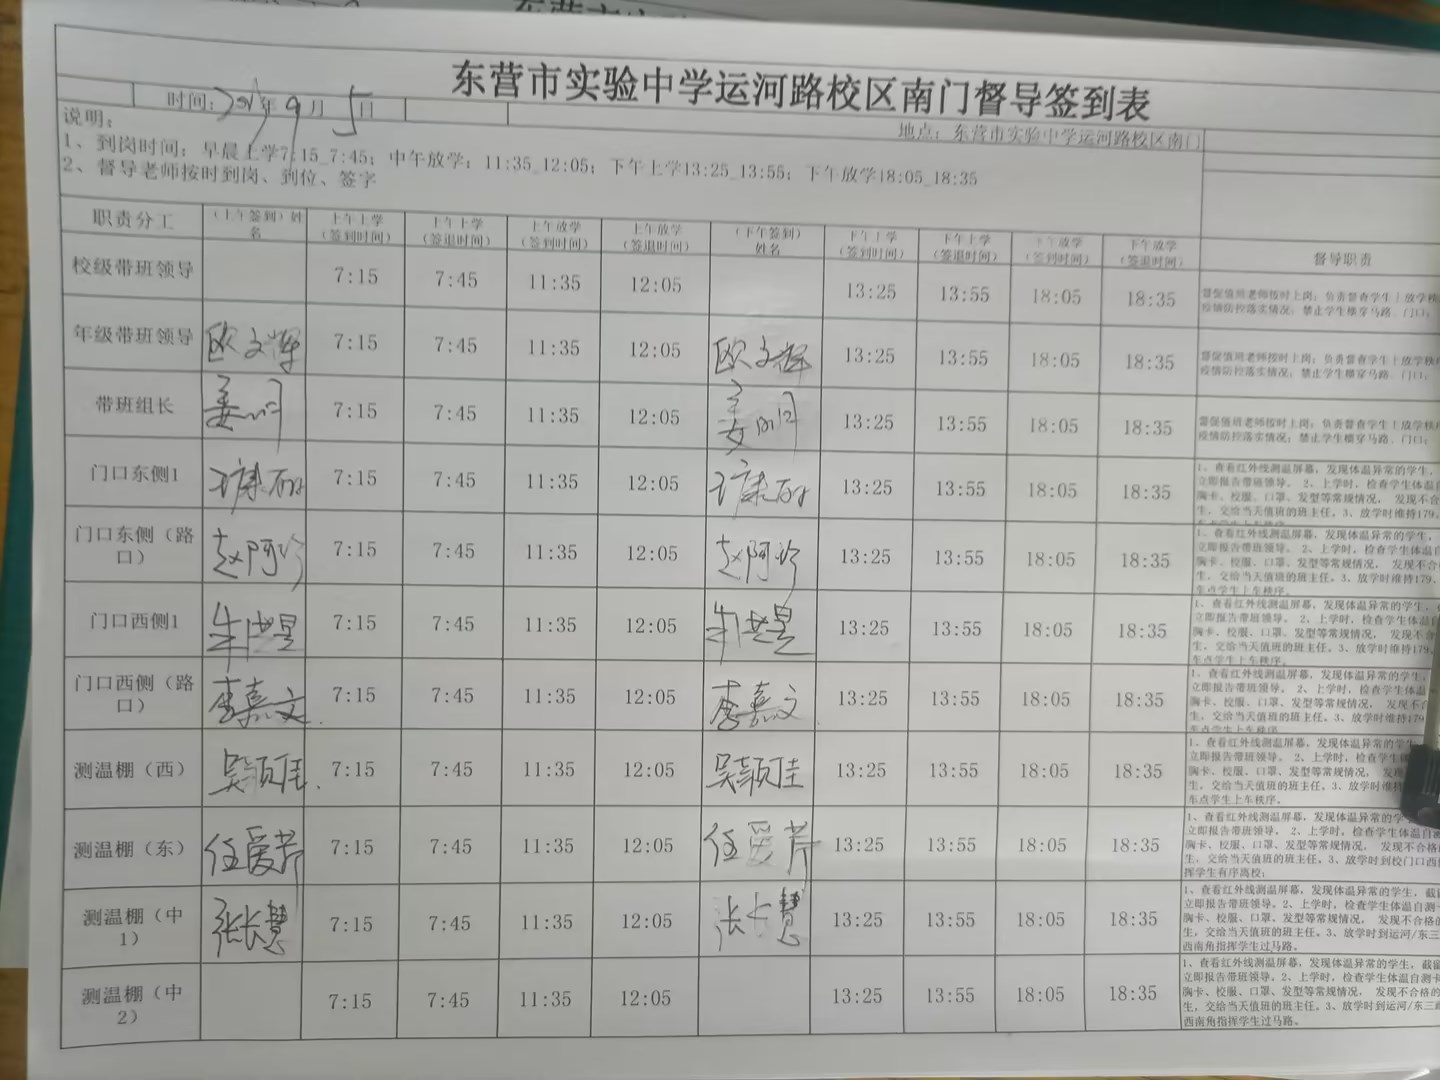 东营市实验中学运河路校区南门督导签到表
时间: 年 9 月 5 日
地点: 东营市实验中学运河路校区南门
说明:
1、到岗时间: 早晨上学7:15_7:45; 中午放学: 11:35_12:05; 下午上学13:25_13:55; 下午放学18:05_18:35
2、督导老师按时到岗、到位、签字
职责分工 （上午签到）姓名 上午上学（签到时间） 上午上学（签退时间） 上午放学（签到时间） 上午放学（签退时间） （下午签到）姓名 下午上学（签到时间） 下午上学（签退时间） 下午放学（签到时间） 下午放学（签退时间） 督导职责
校级带班领导 7:15 7:45 11:35 12:05 13:25 13:55 18:05 18:35
督促值班老师按时上岗; 负责督查学生上放学秩
疫情防控落实情况; 禁止学生横穿马路、门口;
年级带班领导 欧文辉 7:15 7:45 11:35 12:05 欧文辉 13:25 13:55 18:05 18:35
督促值班老师按时上岗; 负责督查学生上放学秩
疫情防控落实情况; 禁止学生横穿马路、门口;
带班组长 7:15 7:45 11:35 12:05 13:25 13:55 18:05 18:35
督促值班老师按时上岗; 负责督查学生上放学秩
疫情防控落实情况; 禁止学生横穿马路、门口;
门口东侧1 7:15 7:45 11:35 12:05 13:25 13:55 18:05 18:35
1、查看红外线测温屏幕, 发现体温异常的学生,
立即报告带班领导。 2、上学时, 检查学生体温自
胸卡、校服、口罩、发型等常规情况, 发现不合
生, 交给当天值班的班主任。3、放学时维持179、
车点学生上车秩序。
门口东侧（路口） 赵阿珍 7:15 7:45 11:35 12:05 赵阿珍 13:25 13:55 18:05 18:35
1、查看红外线测温屏幕, 发现体温异常的学生,
立即报告带班领导。 2、上学时, 检查学生体温自
胸卡、校服、口罩、发型等常规情况, 发现不合
生, 交给当天值班的班主任。3、放学时维持179、
车点学生上车秩序。
门口西侧1 7:15 7:45 11:35 12:05 13:25 13:55 18:05 18:35
1、查看红外线测温屏幕, 发现体温异常的学生,
立即报告带班领导。 2、上学时, 检查学生体温
胸卡、校服、口罩、发型等常规情况, 发现不
生, 交给当天值班的班主任。3、放学时维持179、
车点学生上车秩序。
门口西侧（路口） 李嘉文 7:15 7:45 11:35 12:05 李嘉文 13:25 13:55 18:05 18:35
1、查看红外线测温屏幕, 发现体温异常的学生
立即报告带班领导。 2、上学时, 检查学生体温
胸卡、校服、口罩、发型等常规情况, 发现不合
生, 交给当天值班的班主任。3、放学时维持179
车点学生上车秩序。
测温棚（西） 吴颖佳 7:15 7:45 11:35 12:05 吴颖佳 13:25 13:55 18:05 18:35
1、查看红外线测温屏幕, 发现体温异常的学
立即报告带班领导。 2、上学时, 检查学生体
胸卡、校服、口罩、发型等常规情况, 发现
生, 交给当天值班的班主任。3、放学时维持
车点学生上车秩序。
测温棚（东） 任爱芹 7:15 7:45 11:35 12:05 任爱芹 13:25 13:55 18:05 18:35
1、查看红外线测温屏幕, 发现体温异常的学
立即报告带班领导。 2、上学时, 检查学生体温自测
胸卡、校服、口罩、发型等常规情况, 发现不合格的
生, 交给当天值班的班主任。3、放学时到校门口西
挥学生有序离校;
测温棚（中1） 张长慧 7:15 7:45 11:35 12:05 张长慧 13:25 13:55 18:05 18:35
1、查看红外线测温屏幕, 发现体温异常的学生, 截留
立即报告带班领导。2、上学时, 检查学生体温自测
胸卡、校服、口罩、发型等常规情况, 发现不合格的
生, 交给当天值班的班主任。3、放学时到运河/东三
西南角指挥学生过马路。
测温棚（中2） 7:15 7:45 11:35 12:05 13:25 13:55 18:05 18:35
1、查看红外线测温屏幕, 发现体温异常的学生, 截留
立即报告带班领导。2、上学时, 检查学生体温自测卡
胸卡、校服、口罩、发型等常规情况, 发现不合格的
生, 交给当天值班的班主任。3、放学时到运河/东三路
西南角指挥学生过马路。